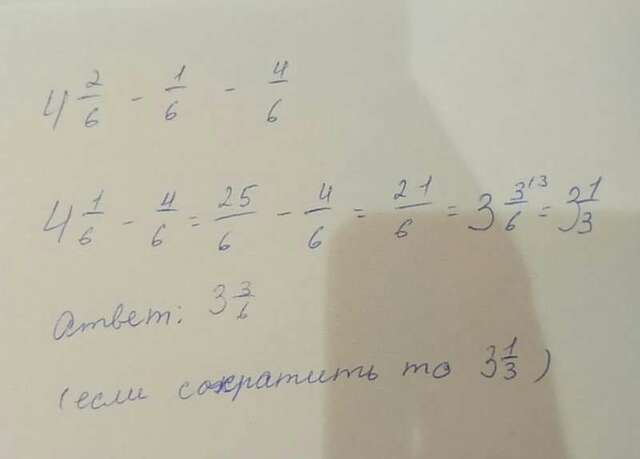 4 2/6 - 1/6 - 4/6
4 1/6 - 4/6 = 25/6 - 4/6 = 21/6 = 3 3/6 ^{/3} = 3 1/3
Ответ: 3 3/6
(если сократить то 3 1/3)